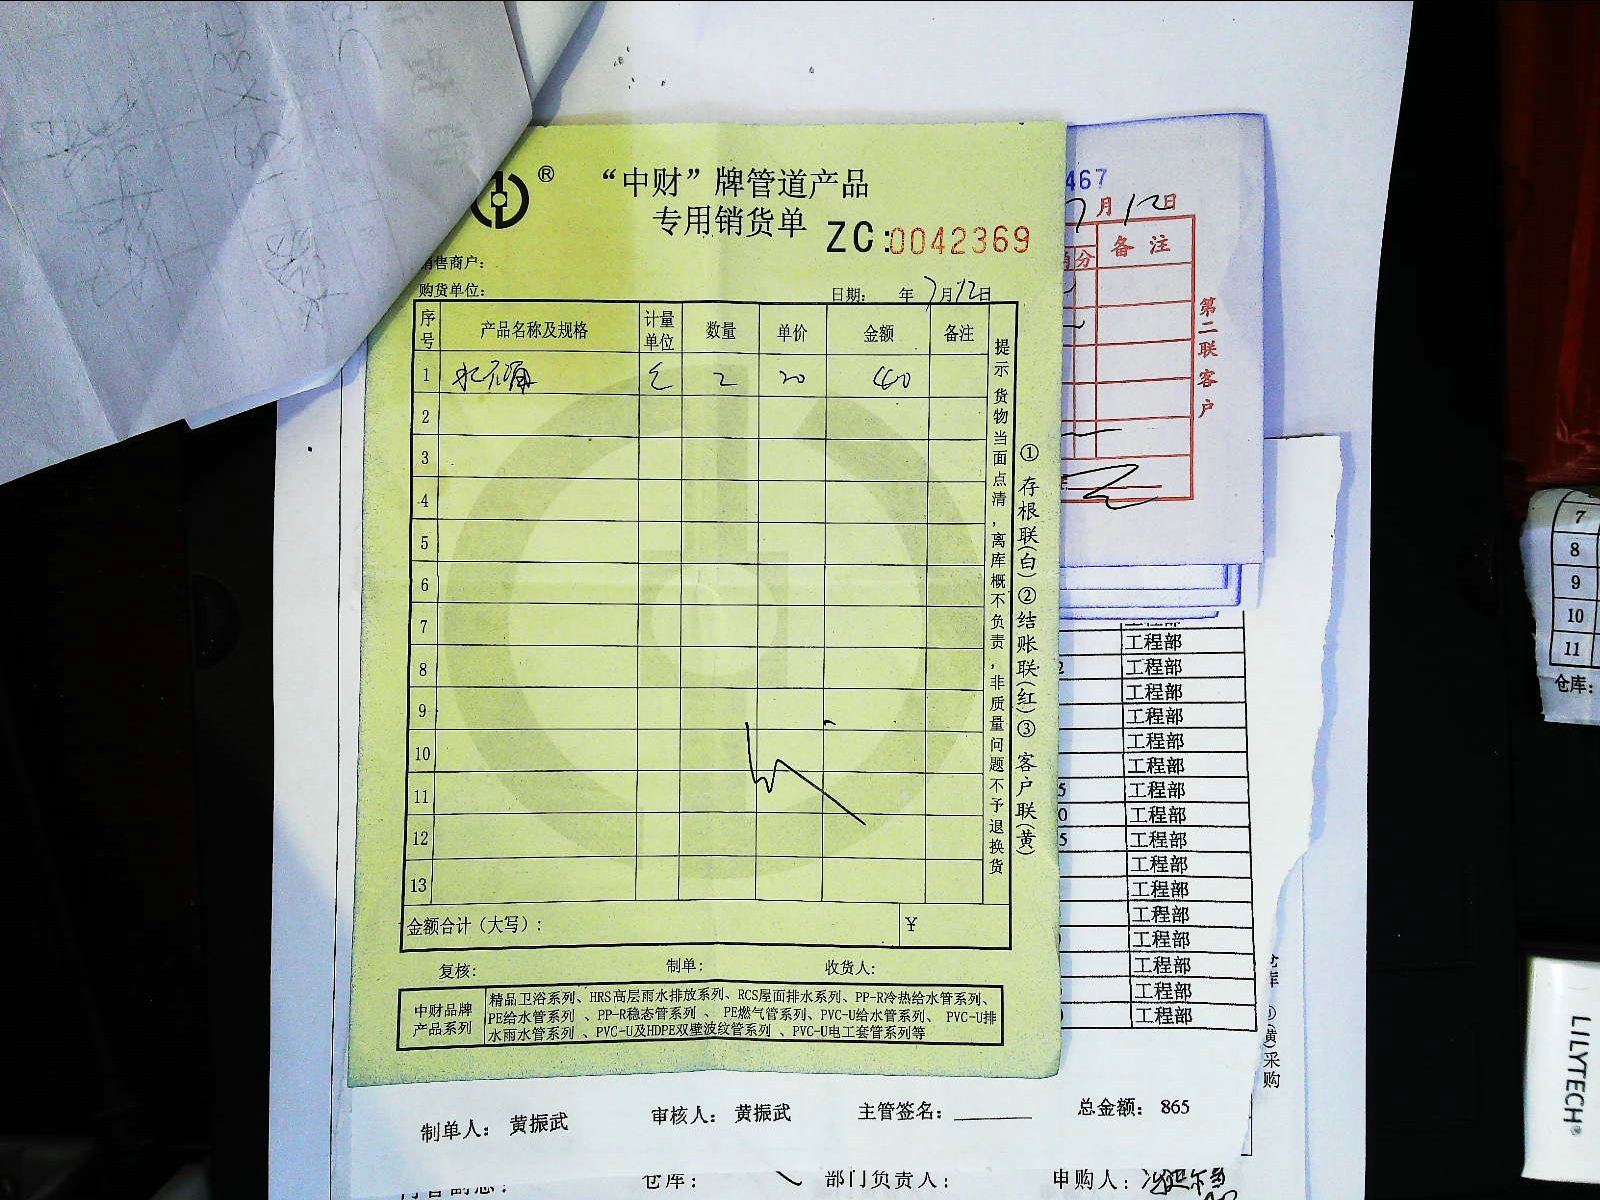 ®
“中财”牌管道产品
专用销货单 ZC:0042369
销售商户:
购货单位: 日期: 年 7月12日
序号 产品名称及规格 计量单位 数量 单价 金额 备注
1 2 20 40
2
3
4
5
6
7
8
9
10
11
12
13
金额合计（大写）: ¥
复核: 制单: 收货人:
中财品牌产品系列
精品卫浴系列、HRS高层雨水排放系列、RCS屋面排水系列、PP-R冷热给水管系列、
PE给水管系列 、PP-R稳态管系列 、 PE燃气管系列、PVC-U给水管系列、 PVC-U排
水雨水管系列 、PVC-U及HDPE双壁波纹管系列 、PVC-U电工套管系列等
提示 货物当面点清，离库概不负责，非质量问题不予退换货
①存根联(白)②结账联(红)③客户联(黄)
467
7月12日
分 备注
第二联客户
工程部
工程部
工程部
工程部
工程部
工程部
工程部
工程部
工程部
工程部
工程部
工程部
工程部
工程部
工程部
工程部
(黄)采购
制单人: 黄振武 审核人: 黄振武 主管签名: 总金额: 865
仓库: 部门负责人: 申购人:
7
8
9
10
11
仓库:
LILYTECH®